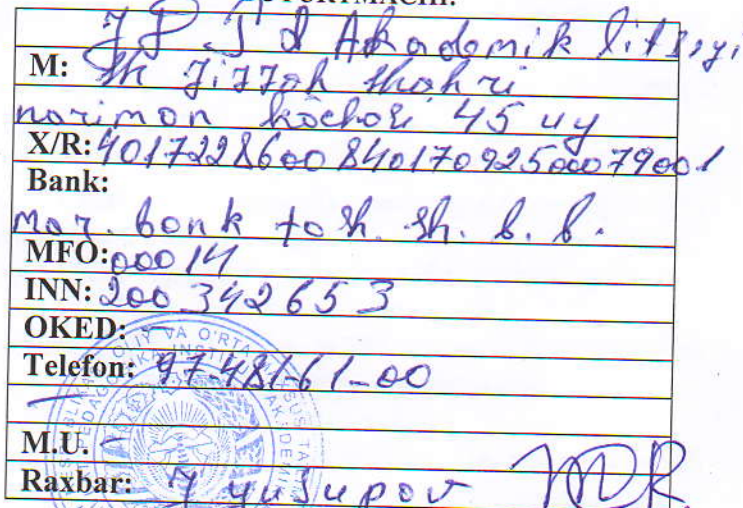 JP I d Akademik litseyi
M: Sh Jizzah shahri
narimon ko'chasi 45 uy
X/R: 401722860084017092500079001
Bank:
Mar. bank tosh. sh. b. b.
MFO: 00014
INN: 200342653
OKED: —
Telefon: 97-481-61-00
—
M.U. —
Raxbar: J yusupov